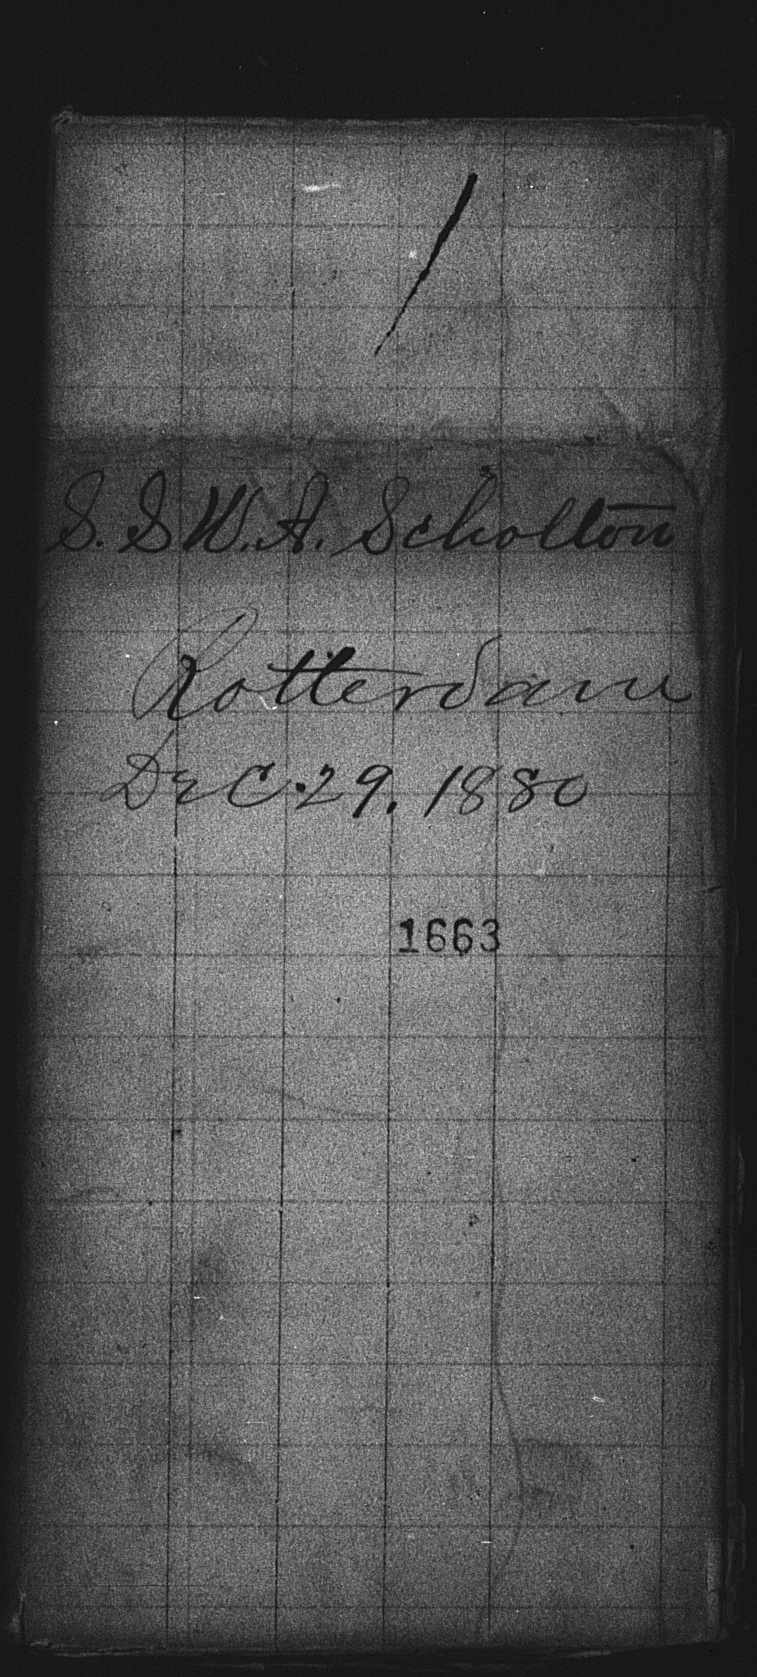 /
S. S W. A. Scholton
Rotterdam
Dec. 29. 1880
1663